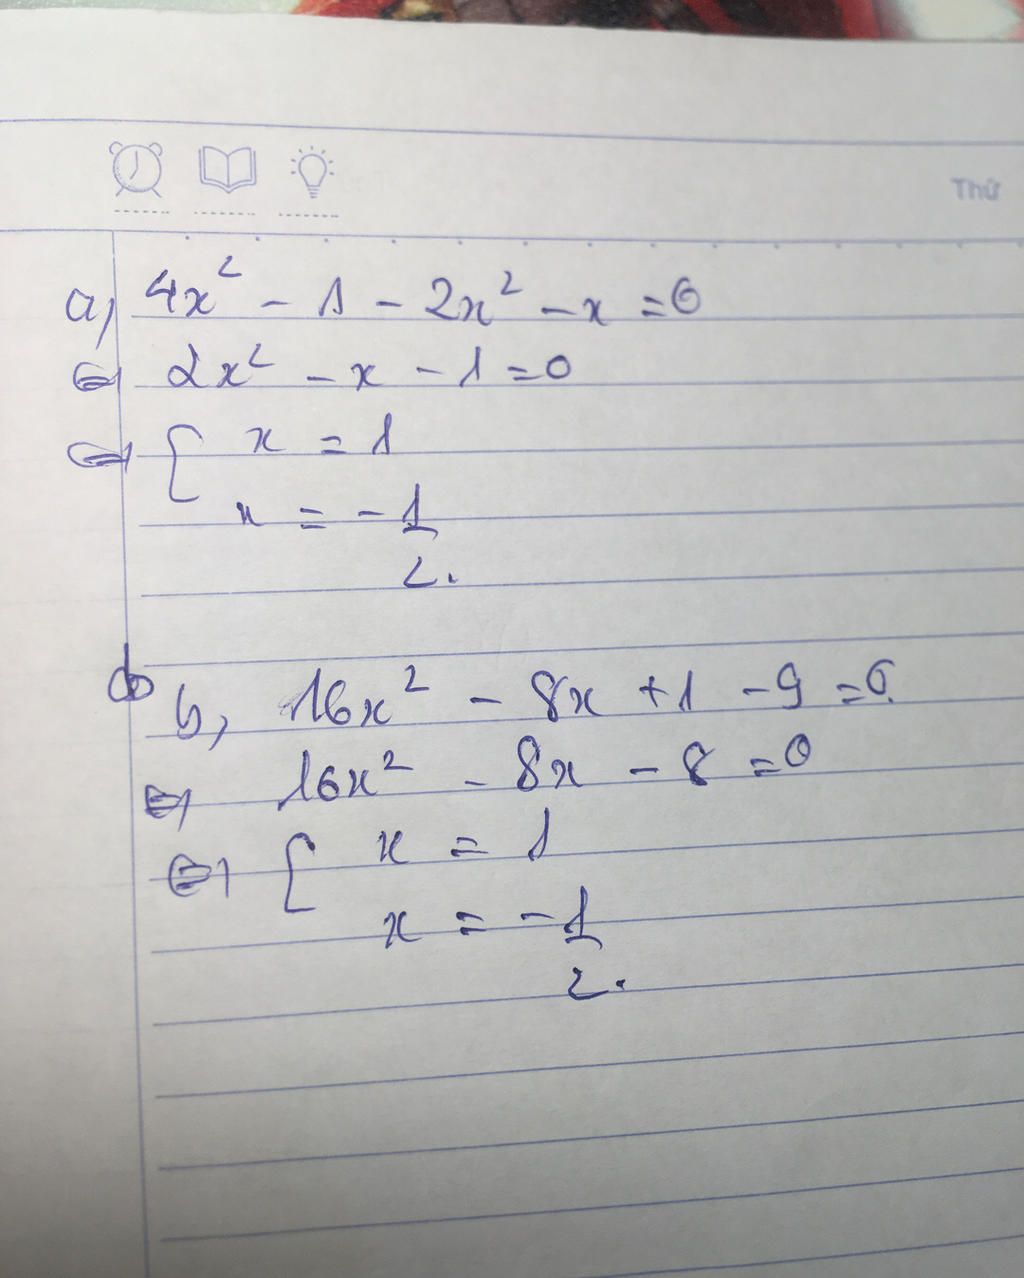 Thứ
a, 4x² - 1 - 2x² - x = 0
⇔ 2x² - x - 1 = 0
⇔ [ x = 1
x = -1/2.
b, 16x² - 8x + 1 - 9 = 0.
⇔ 16x² - 8x - 8 = 0
⇔ [ x = 1
x = -1/2.